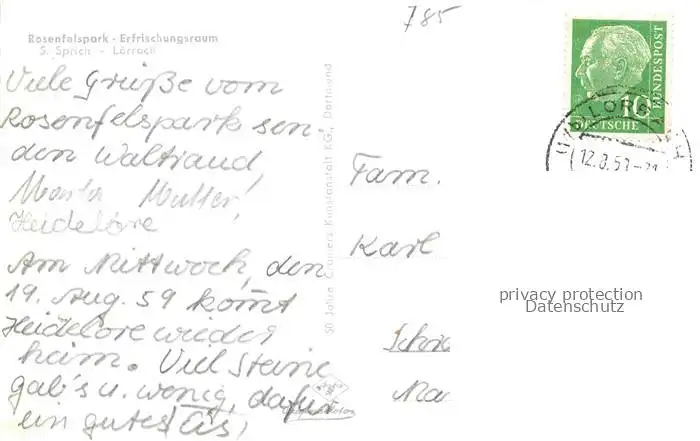 785
Rosenfelspark - Erfrischungsraum
S. Sprich - Lörrach
Viele Grüße vom
Rosenfelspark sen
den Waltraud,
Mutter!
Heidelore
Am Mittwoch, den
19. Aug. 59 kom̄t
Heidelore wieder
heim. Viel Steine
gab's u. wenig, dafür
ein gutes Eis!
50 Jahre Cramers Kunstanstalt KG., Dortmund
Fam.
Karl
Schri
Ma
10
BUNDESPOST
DEUTSCHE
LÖRRACH
12.8.59
privacy protection
Datenschutz